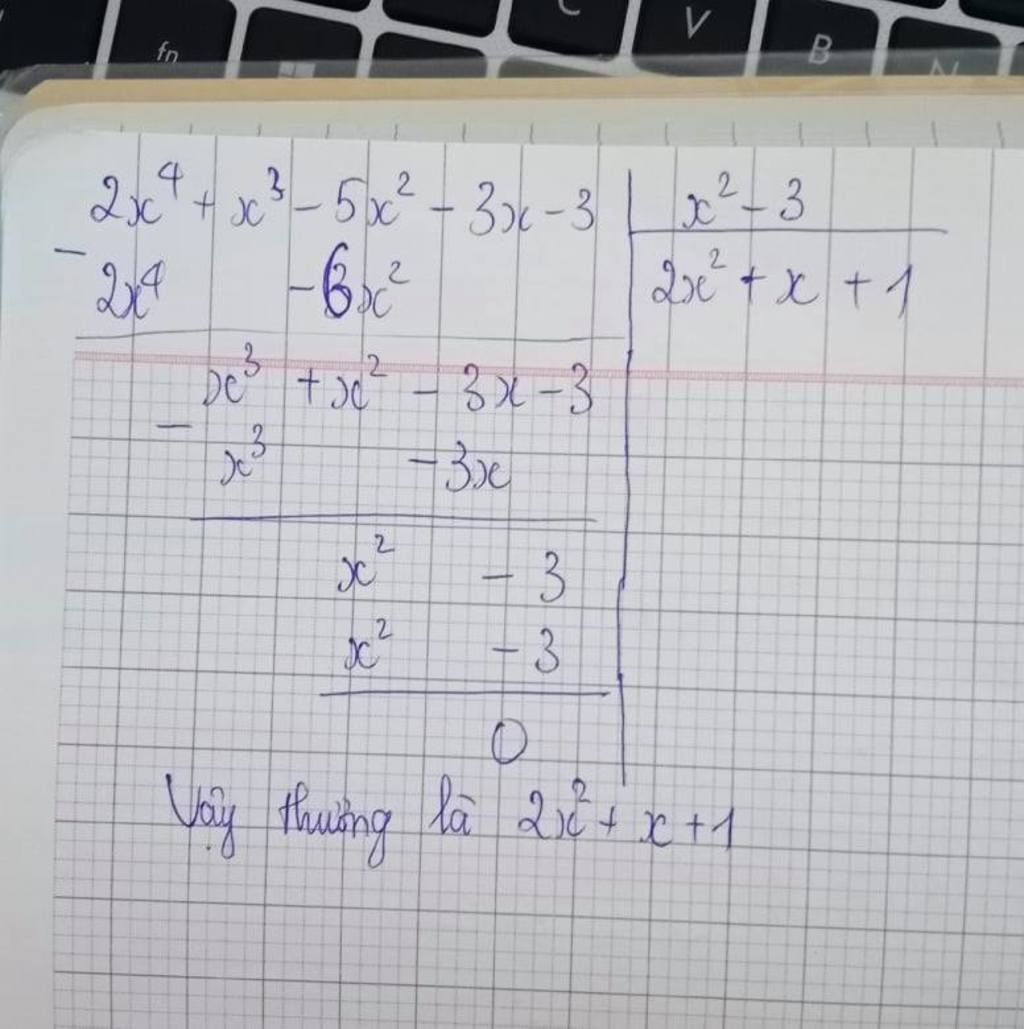 fn C V B N
2x⁴ + x³ - 5x² - 3x - 3 | x² - 3
- 2x⁴ - 6x² | 2x² + x + 1
x³ + x² - 3x - 3
- x³ - 3x
x² - 3
x² - 3
0
Vậy thương là 2x² + x + 1